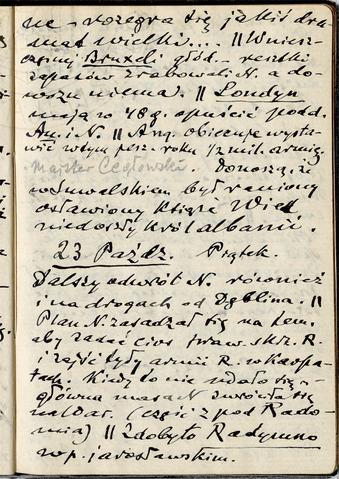 ne – rozegra się jakiś dra-
mat wielki... || W niesz-
częsnej Bruxeli głód – resztki
zapasów zrabowali N. a do-
wozu niema. || Londyn
mają w 48 g. opuścić podd.
Au. i N. || Ang. obiecuje wysta-
wić w tym jesz. roku 1/2 mil. armię.
Majster Cegłowski. Donoszą, że
w Suwalskiem był raniony
osławiony książę Wied
niedoszły król albanii.
23 Paźdz. Piątek.
Dalszy odwrót N. również
i na drogach od Dęblina. ||
Plan N. zasadzał się na tem,
aby zadać cios praw. skrz. R.
i zajść tyły armii R. w Karpa-
tach. Kiedy to nie udało się –
główna masa N. zwróciła się
na War. (część z pod Rado-
mia) || Zdobyto Radymno
w p. jarosławskim.